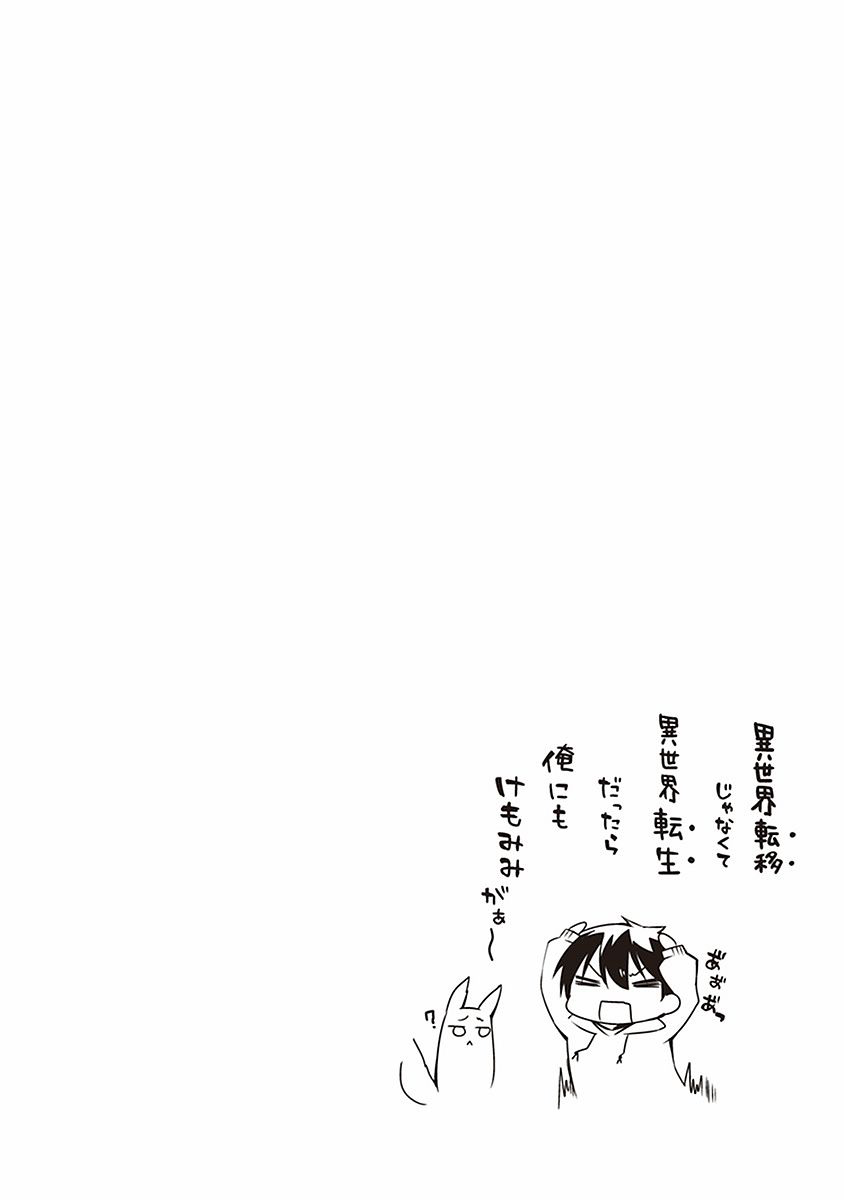 異世界転移
じゃなくて
異世界転生
だったら
俺にも
けもみみ
がぁ〜
あぁぁぁっ
?